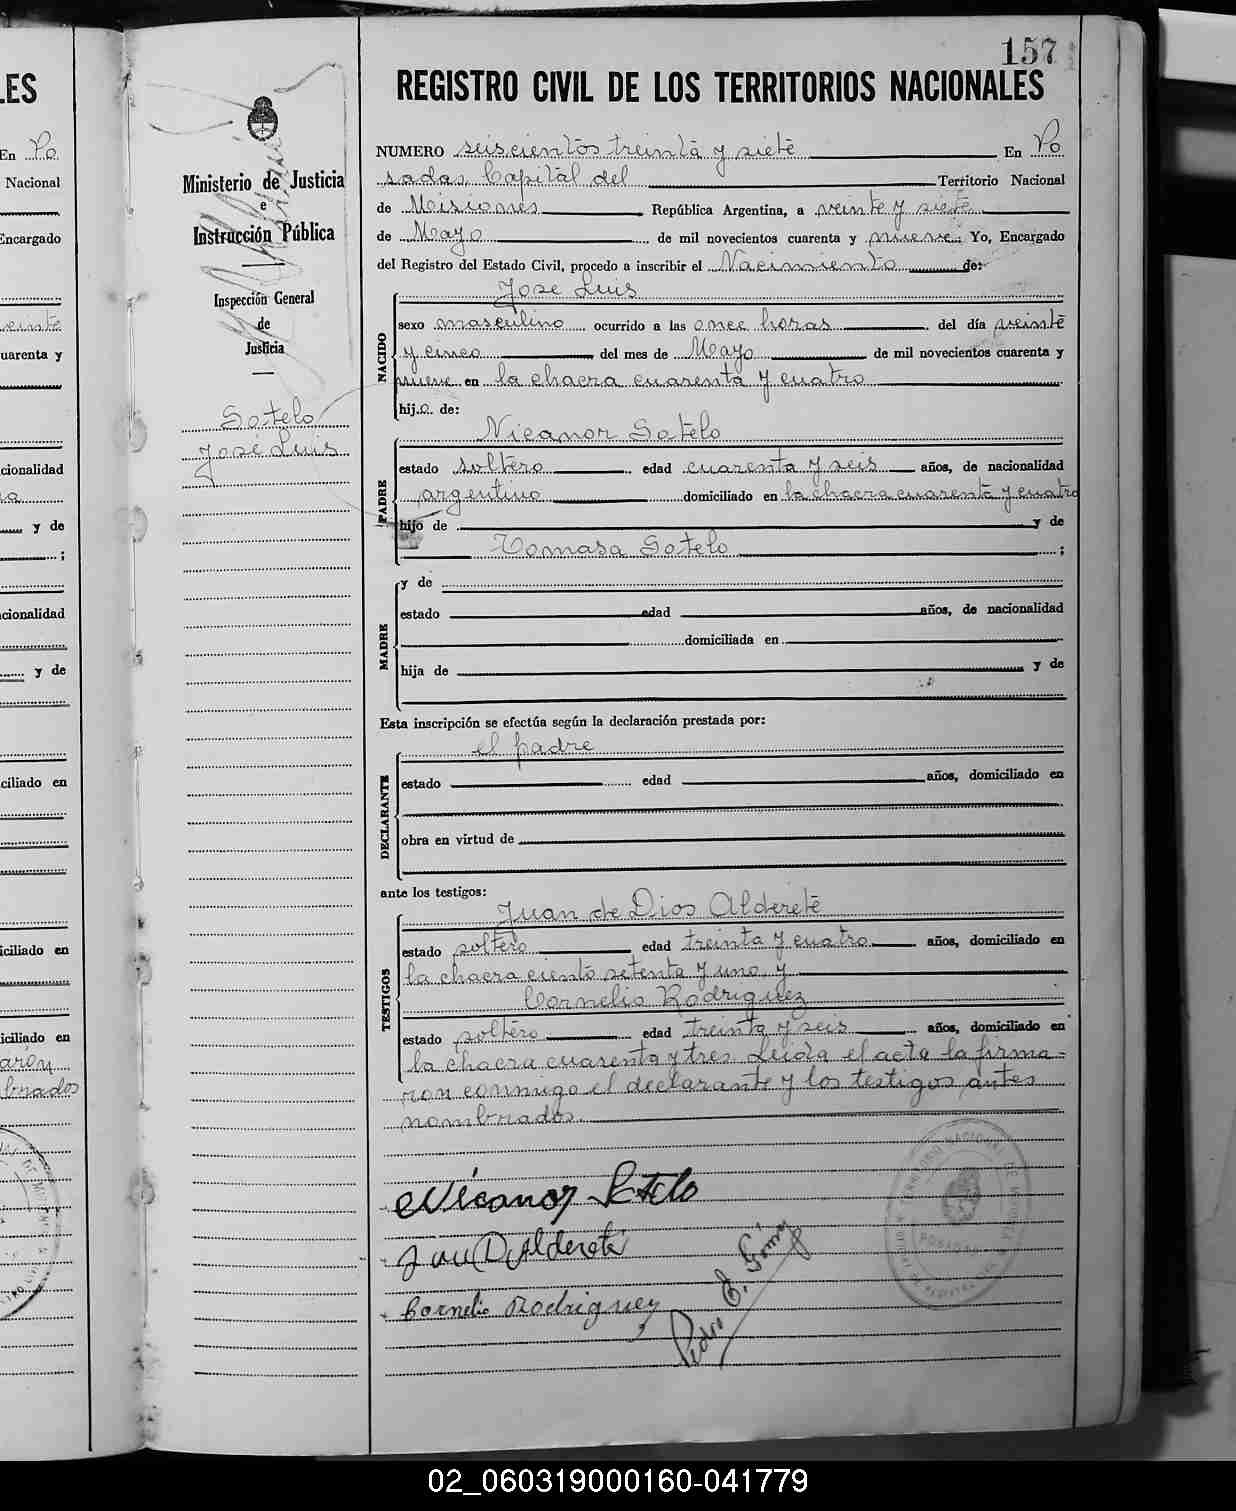 157
REGISTRO CIVIL DE LOS TERRITORIOS NACIONALES
NUMERO seiscientos treinta y siete En Po
sadas, Capital del Territorio Nacional
de Misiones República Argentina, a veinte y siete
de Mayo de mil novecientos cuarenta y nueve. Yo, Encargado
del Registro del Estado Civil, procedo a inscribir el Nacimiento de:
NACIDO
Jose Luis
sexo masculino ocurrido a las once horas del día veinte
y cinco del mes de Mayo de mil novecientos cuarenta y
nueve en la chacra cuarenta y cuatro
hij.o. de:
PADRE
Nicanor Sotelo
estado soltero edad cuarenta y seis años, de nacionalidad
argentino domiciliado en la chacra cuarenta y cuatro
hijo de y de
Tomasa Sotelo ;
MADRE
y de
estado edad años, de nacionalidad
domiciliada en
hija de y de
Esta inscripción se efectúa según la declaración prestada por:
DECLARANTE
el padre
estado edad años, domiciliado en
obra en virtud de
ante los testigos:
TESTIGOS
Juan de Dios Alderete
estado soltero edad treinta y cuatro años, domiciliado en
la chacra ciento setenta y uno, y
Cornelio Rodriguez
estado soltero edad treinta y seis años, domiciliado en
la chacra cuarenta y tres. Leida el acta la firma=
ron conmigo el declarante y los testigos antes
nombrados.
Nicanor Sotelo
Juan D Alderete
Cornelio Rodriguez
Pedro E. Gómez
POSADAS
Ministerio de Justicia
e
Instrucción Pública
Inspección General
de
Justicia
Sotelo
José Luis
LES
En Po
Nacional
Encargado
veinte
uarenta y
cionalidad
y de
;
cionalidad
y de
ciliado en
iciliado en
iciliado en
aron
brados
02_060319000160-041779